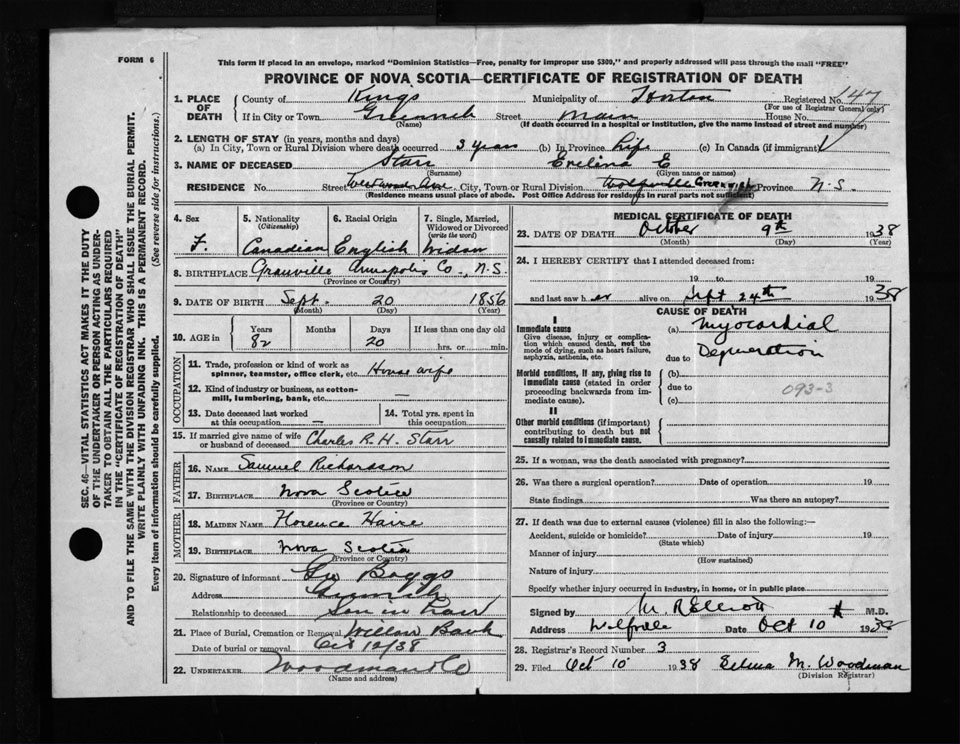 FORM 6
This form if placed in an envelope, marked "Dominion Statistics—Free, penalty for improper use $309," and properly addressed will pass through the mail "FREE"
PROVINCE OF NOVA SCOTIA—CERTIFICATE OF REGISTRATION OF DEATH
1. PLACE OF DEATH County of Kings Municipality of Horton Registered No. 147
(For use of Registrar General only)
If in City or Town Greenwich Street Main House No.
(Name) (If death occurred in a hospital or institution, give the name instead of street and number)
2. LENGTH OF STAY (in years, months and days)
(a) In City, Town or Rural Division where death occurred 3 years (b) In Province Life (c) In Canada (if immigrant)
3. NAME OF DECEASED Starr Evelina E
(Surname) (Given name or names)
RESIDENCE No. Street Westwood Ave City, Town or Rural Division Wolfville Greenwich Province N.S.
(Residence means usual place of abode. Post Office Address for residents in rural parts not sufficient)
SEC. 46—VITAL STATISTICS ACT MAKES IT THE DUTY
OF THE UNDERTAKER OR PERSON ACTING AS UNDER-
TAKER TO OBTAIN ALL THE PARTICULARS REQUIRED
IN THE "CERTIFICATE OF REGISTRATION OF DEATH"
AND TO FILE THE SAME WITH THE DIVISION REGISTRAR WHO SHALL ISSUE THE BURIAL PERMIT.
WRITE PLAINLY WITH UNFADING INK. THIS IS A PERMANENT RECORD.
Every item of information should be carefully supplied. (See reverse side for instructions.)
4. Sex F.
5. Nationality (Citizenship) Canadian
6. Racial Origin English
7. Single, Married, Widowed or Divorced (write the word) Widow
8. BIRTHPLACE Granville Annapolis Co., N.S.
(Province or Country)
9. DATE OF BIRTH Sept. 20 1856
(Month) (Day) (Year)
10. AGE in Years 82 Months Days 20 If less than one day old
hrs. or min.
OCCUPATION
11. Trade, profession or kind of work as spinner, teamster, office clerk, etc. House wife
12. Kind of industry or business, as cotton-mill, lumbering, bank, etc. —
13. Date deceased last worked at this occupation —
14. Total yrs. spent in this occupation
15. If married give name of wife or husband of deceased Charles R. H. Starr
FATHER
16. NAME Samuel Richardson
17. BIRTHPLACE Nova Scotia
(Province or Country)
MOTHER
18. MAIDEN NAME Florence
19. BIRTHPLACE Nova Scotia
(Province or Country)
20. Signature of informant Geo Boggs
Address Greenwich
Relationship to deceased Son in Law
21. Place of Burial, Cremation or Removal Willow Bank
Date of burial or removal Oct 12/38
22. UNDERTAKER Woodman & Co
(Name and address)
MEDICAL CERTIFICATE OF DEATH
23. DATE OF DEATH October 9th 1938
(Month) (Day) (Year)
24. I HEREBY CERTIFY that I attended deceased from:
19 to 19
and last saw her alive on Sept 24th 1938
CAUSE OF DEATH
I
Immediate cause
Give disease, injury or complication which caused death, not the mode of dying, such as heart failure, asphyxia, asthenia, etc.
(a) Myocardial
due to Degeneration
Morbid conditions, if any, giving rise to immediate cause (stated in order proceeding backwards from immediate cause).
(b)
due to
(c)
093-3
II
Other morbid conditions (if important) contributing to death but not causally related to immediate cause.
25. If a woman, was the death associated with pregnancy?
26. Was there a surgical operation? Date of operation 19
State findings Was there an autopsy?
27. If death was due to external causes (violence) fill in also the following:—
Accident, suicide or homicide? Date of injury 19
(State which)
Manner of injury
(How sustained)
Nature of injury
Specify whether injury occurred in industry, in home, or in public place
Signed by M. R Elliott M.D.
Address Wolfville Date Oct 10 1938
28. Registrar's Record Number 3
29. Filed Oct 10 1938 Selma M. Woodman
(Division Registrar)